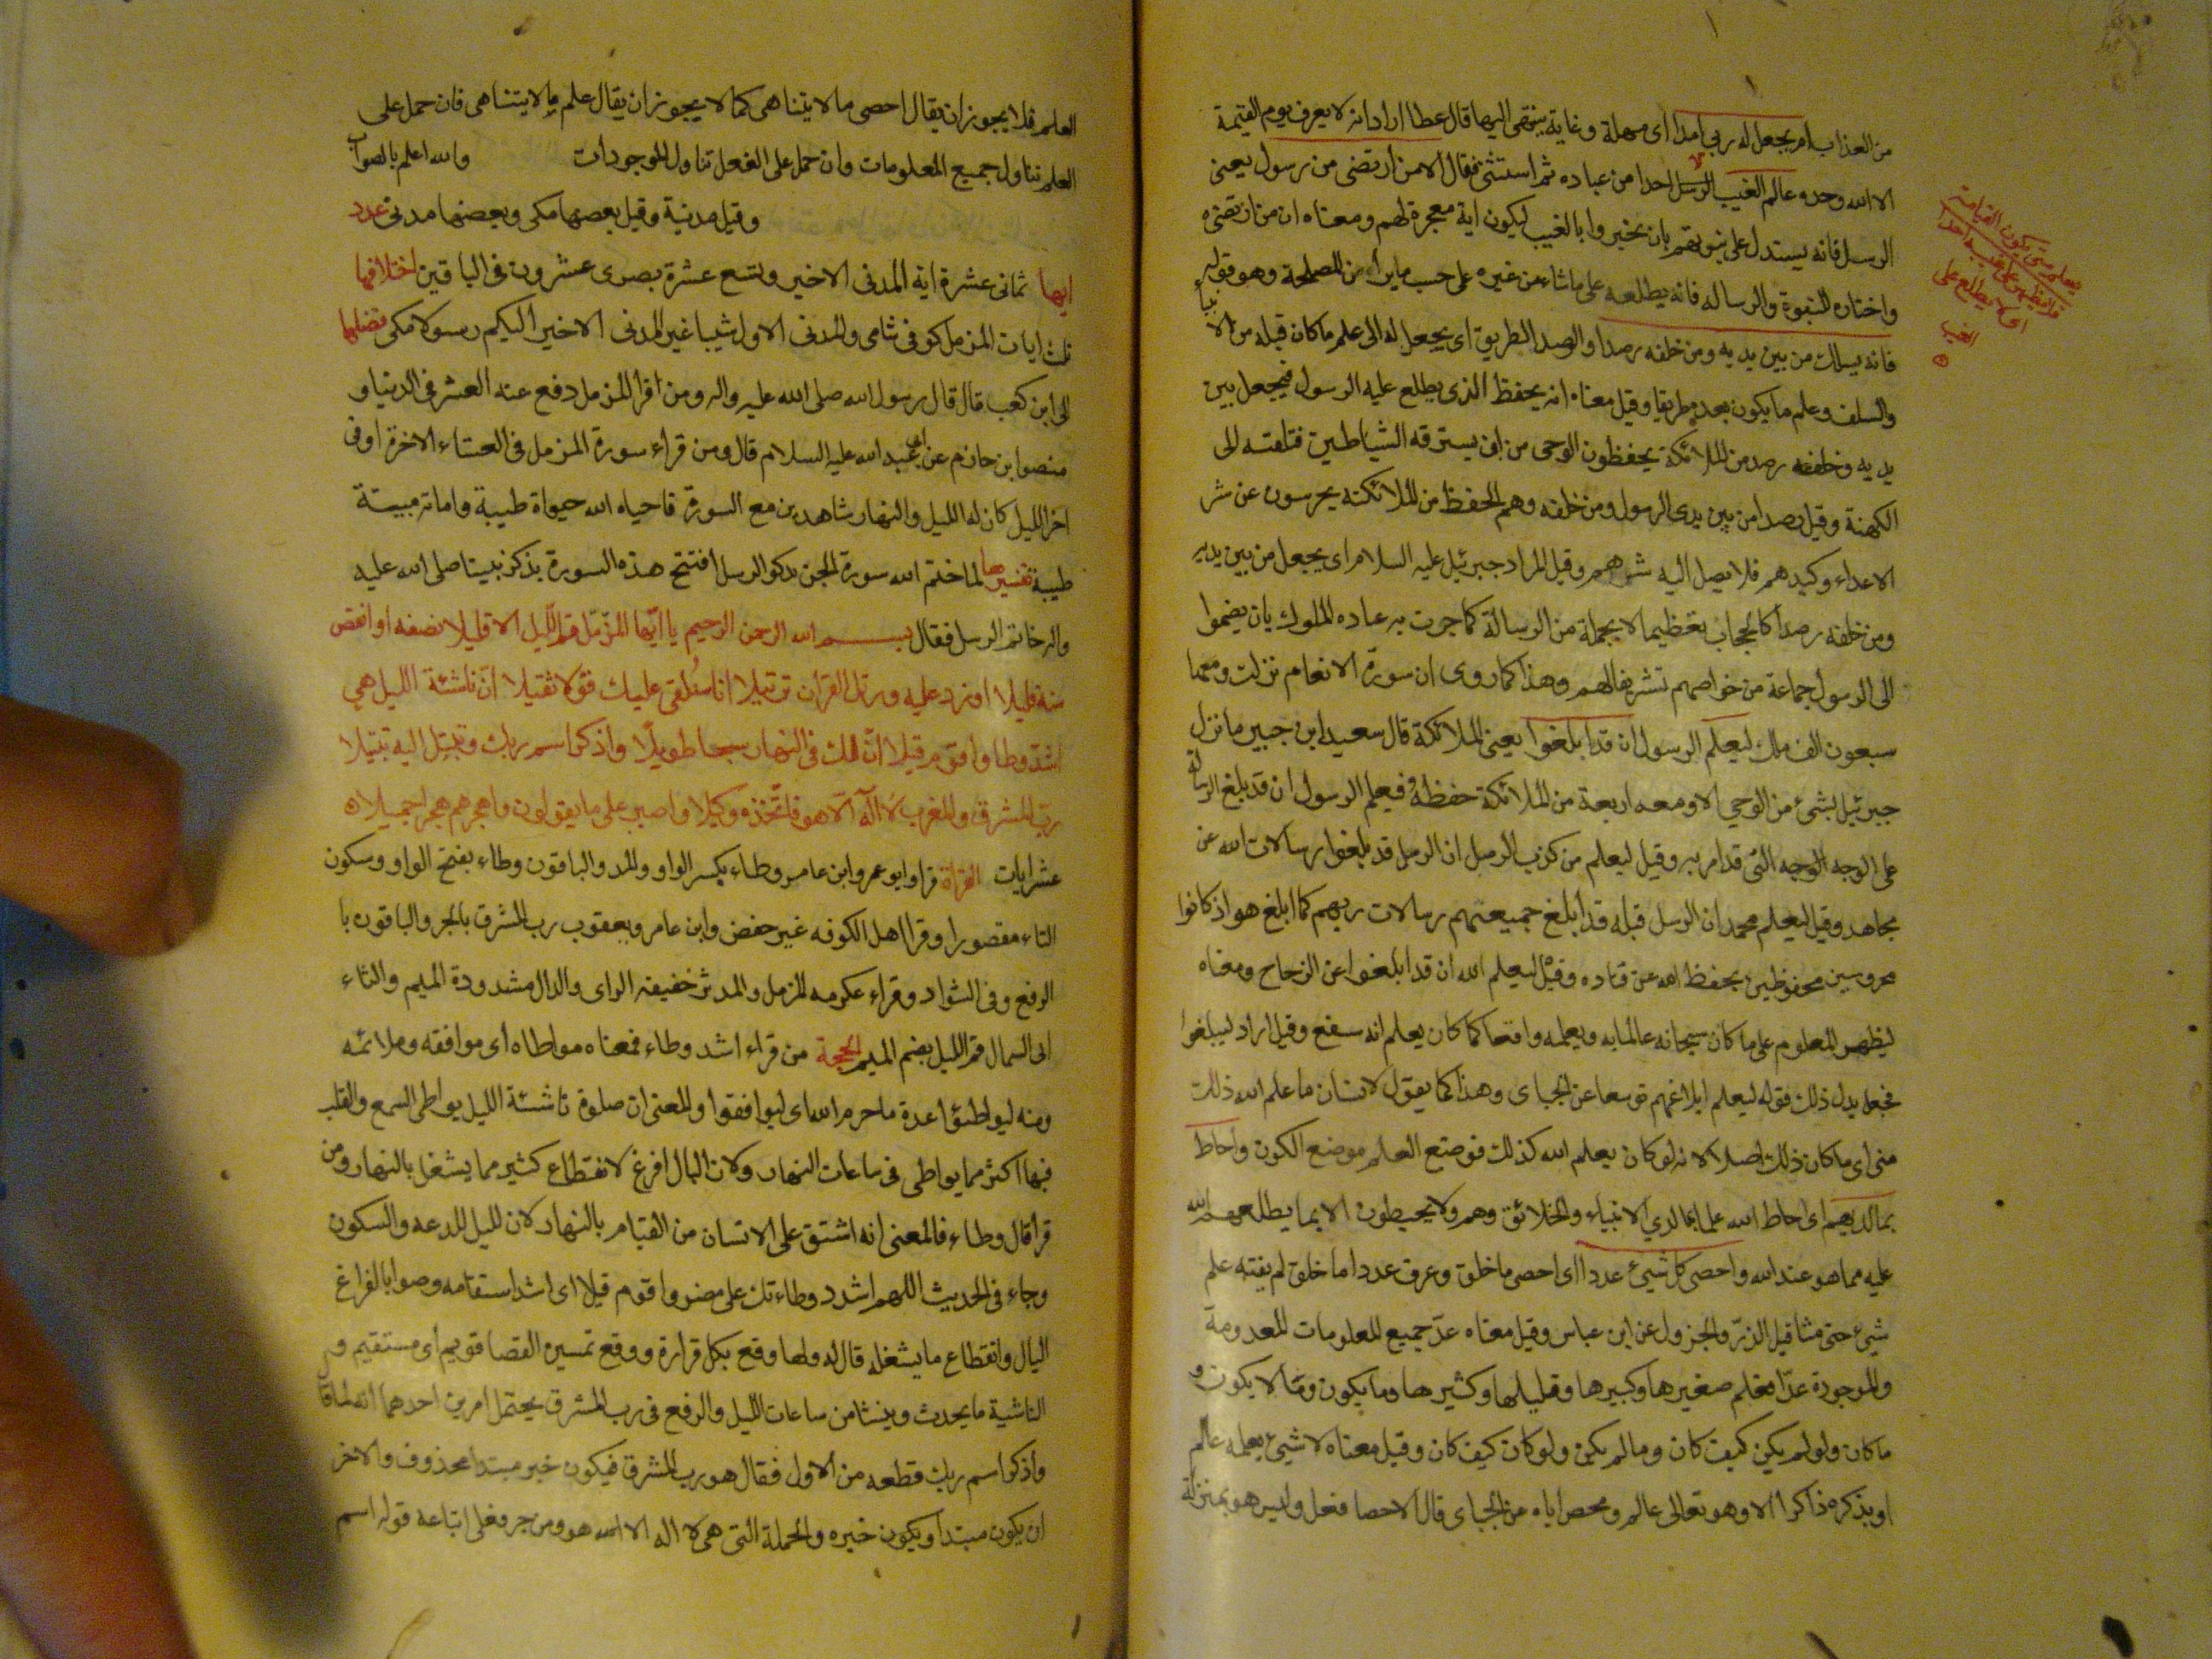 من العذاب ام يجعل له ربي امدا اى مهلة وغاية ينتهى اليها قال عطا اراد انه لا يعرف يوم القيمة
الا الله وحده عالم الغيب احدا من عباده ثم استثنى فقال الا من ارتضى من رسول يعنى
الرسل فانه يستدل على نبوتهم بان يخبروا بالغيب ليكون اية معجزة لهم ومعناه ان من ارتضى
واختاره للنبوة والرساله فانه يطلعه على ما شاء من غيبه على حسب ما يراه من المصلحة وهو قوله
فانه يسلك من بين يديه ومن خلفه رصدا والرصد الطريق اى يجعل له الى علم ما كان قبله من الا نبيا
والسلف وعلم ما يكون بعده طريقا وقيل معناه انه يحفظ الذى يطلع عليه الرسول فيجعل بين
يديه وخلفه رصد من الملائكة يحفظون الوحى من ان يسترقه الشياطين فتلقته الى
الكهنة وقيل رصدا من بين يدى الرسول ومن خلفه وهم الحفظ من الملائكته يحرسون عن شر
الاعداء وكيدهم فلا يصل اليه شرهم وقيل المراد جبرئيل عليه السلام اى يجعل من بين يديه
ومن خلفه رصدا كالحجاب تعظيما لا يجملة من الرسالة كما جرت به عاده الملوك بان يضموا
الى الرسول جماعة من خواصهم تشريفا لهم وهذا كما روى ان سورة الانعام نزلت ومعها
سبعون الف ملك ليعلم الرسول ان قد ابلغوا يعنى الملائكة قال سعيد ابن جبير ما نزل
جبرئيل بشئ من الوحي الا ومعه اربعة من الملائكة حفظة فيعلم الرسول ان قد بلغ الرسالة
على الوجه الوجه التى قد امر به وقيل ليعلم من كذب الرسل ان الرسل قد بلغوا رسالات الله عن
مجاهد وقيل ليعلم محمد ان الرسل قبله قد ابلغ جميعهم رسالات ربهم كما ابلغ هو اذ كانوا
محروسين محفوظين بحفظ الله عن قتاده وقيل ليعلم الله ان قد ابلغوا عن الزجاج ومعناه
ليظهر المعلوم على ما كان سبحانه عالما به ويعلمه واقعا كما كان يعلم انه سيقع وقيل اراد ليبلغوا
فجعل بدل ذلك قوله ليعلم ابلاغهم توسعا عن الجباى وهذا كما يقول لانسان ما علم الله ذلك
منى اى ما كان ذلك اصلا لانه لو كان يعلم الله كذلك فوضع العلم موضع الكون واحاط
بما لديهم اى احاط الله علما بما لدي الانبياء والخلائق وهم ولا يحيطون الا بما يطلعهم الله
عليه مما هو عند الله واحصى كل شيئ عددا اى احصى ما خلق وعرف عدد اما خلق لم يفته علم
شيئ حتى مثاقيل الذرّ والخردل عن ابن عباس وقيل معناه عدّ جميع المعلومات المعدومة
والموجودة عدّا فعلم صغيرها وكبيرها وقليلها وكثيرها وما يكون وما لا يكون و
ما كان ولو لم يكن كيف كان وما لم يكن ولو كان كيف كان وقيل معناه لا شيئ يعلمه عالم
او يذكره ذاكر الا وهو تعالى عالم ومحص اياه عن الجباى قال الاحصا فعل وليس هو بمنزلة
قل متى يكون القيامة
فلا يظهر على غيبه احدا
اى لا يطلع على
الغيب
العلم فلا يجوز ان يقال احصى ما لا يتناهى كما لا يجوز ان يقال علم ما لا يتناهى فان حمل على
العلم تناول جميع المعلومات وان حمل على الفعل تناول الموجودات والله اعلم بالصواب
وقيل مدنية وقيل بعضها مكى وبعضها مدنى عدد
ايها ثمانى عشرة اية المدنى الاخير وتسع عشرة بصرى عشرون فى الباقين اختلافها
ثلث ايات المزمل كوفى شامى والمدنى الاول شيبا غير المدنى الاخير اليكم رسولا مكى فضلها
ابى ابن كعب قال قال رسول الله صلى الله عليه واله ومن اقرا المزمل دفع عنه العسر فى الدنيا و
منصور ابن حازم عن ابى عبد الله عليه السلام قال ومن قراء سورة المزمل فى العشاء الاخرة او فى
اخر الليل كان له الليل والنهار شاهدين مع السورة فاحياه الله حيواة طيبة واماته ميتة
طيبة تفسيرها لما ختم الله سورة الجن بذكر الرسل افتتح هذه السورة بذكر نبينا صلى الله عليه
واله خاتم الرسل فقال بسم الله الرحمن الرحيم يا ايّها المزّمّل قم اللّيل الا قليلا نصفه او انقص
منه قليلا او زد عليه ورتل القرآن ترتيلا انا سنُلقى عليك قولا ثقيلا انّ ناشئة الليل هي
اشدّ وطا واقوم قيلا انّ لك فى النهار سبحا طويلًا واذكر اسم ربك وتبتل اليه تبتيلا
ربّ المشرق والمغرب لا اله الّا هو فاتّخذه وكيلا واصبر على ما يقولون واهجرهم هجرا جميلاه
عشر ايات القراة قرا وابو عمرو وابن عامر وطاء بكسر الواو والمد والباقون وطاء بفتح الواو وسكون
الثاء مقصورا وقرا اهل الكوفه غير حفص وابن عامر ويعقوب رب المشرق بالجر والباقون با
الرفع وفى الشواد وقراء عكرمه المزمل والمدثر خفيفة الراى والدال مشدودة الميم والثاء
ابى السمال قم الليل بضم الميم الحجة من قراء اشد وطاء فمعناه مواطاه اى موافقه وملائمه
ومنه ليواطئوا عدة ما حرم الله اى ليوافقوا والمعنى ان صلوة ناشئة الليل يواطى السمع والقلب
فيها اكثر مما يواطى فى ساعات النهار ولان البال افرغ لانقطاع كثير مما يشغل بالنهار ومن
قرا قال وطاء فالمعنى انه اشق على الانسان من القيام بالنهار لان الليل للدعه والسكون
وجاء فى الحديث اللهم اشدد وطاءتك على مضر واقوم قيلا اى اشد استقامه وصوابا لفراغ
البال وانقطاع ما يشغله قال وقع بكل قرارة ووقع قويم اى مستقيم و
الناشية ما يحدث وينشا من ساعات الليل والرفع فى رب المشرق يحتمل امرين احدهما انه لما قا
واذكر اسم ربك قطعه من الاول فقال هو رب المشرق فيكون خبر مبتدا محذوف والاخر
ان يكون مبتدا ويكون خبره والجملة التى هى لا اله الا الله هو ومن جر فعلى اتباعه قوله اسم